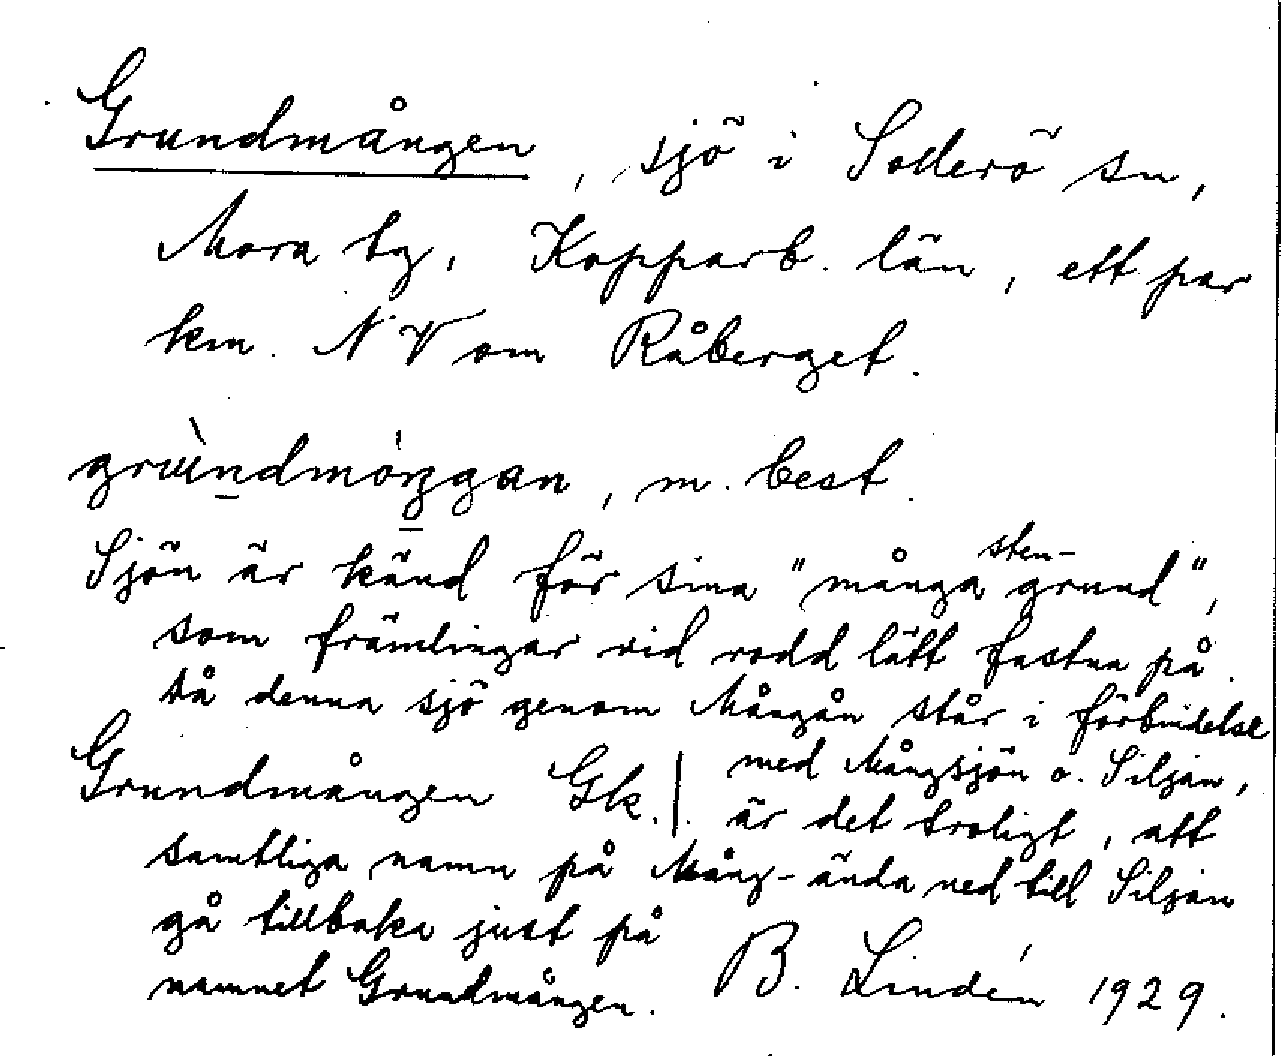 Grundmången, sjö i Sollerö sn,
Mora tg, Kopparb. län, ett par
km. NV om Råberget.
grùndmóŋgan, m. best.
Sjön är känd för sina "många sten-grund",
som främlingar vid rodd lätt fastna på.
Då denna sjö genom Mångån står i förbindelse
med Mångsjön o. Siljan,
Grundmången Gk.
är det troligt, att
samtliga namn på Mång- ända ned till Siljan
gå tillbaka just på
namnet Grundmången.
B. Lindén 1929.